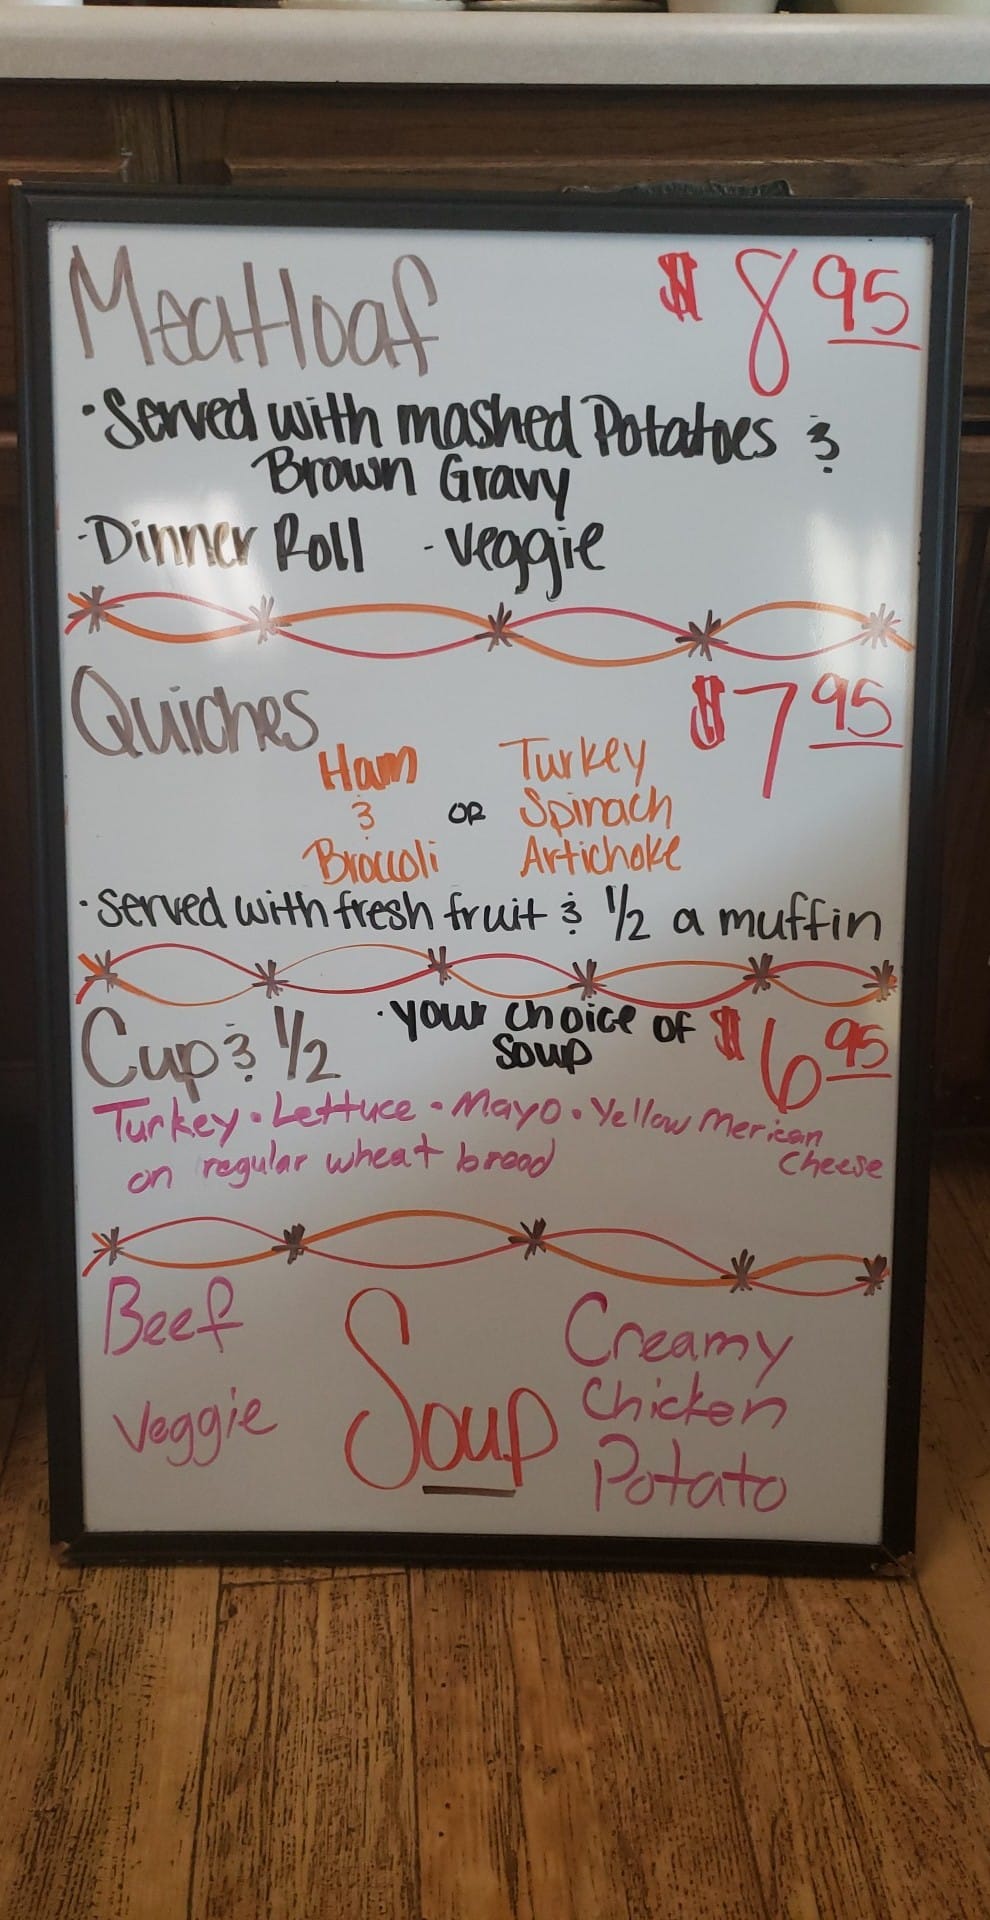 Meatloaf $8.95
· Served with mashed Potatoes &
Brown Gravy
· Dinner Roll - Veggie
Quiches $7.95
Ham & Broccoli or Turkey Spinach Artichoke
· Served with fresh fruit & 1/2 a muffin
Cup & 1/2 · your choice of soup $6.95
Turkey · Lettuce · Mayo · Yellow Merican Cheese
on regular wheat bread
Soup
Beef Veggie
Creamy Chicken Potato